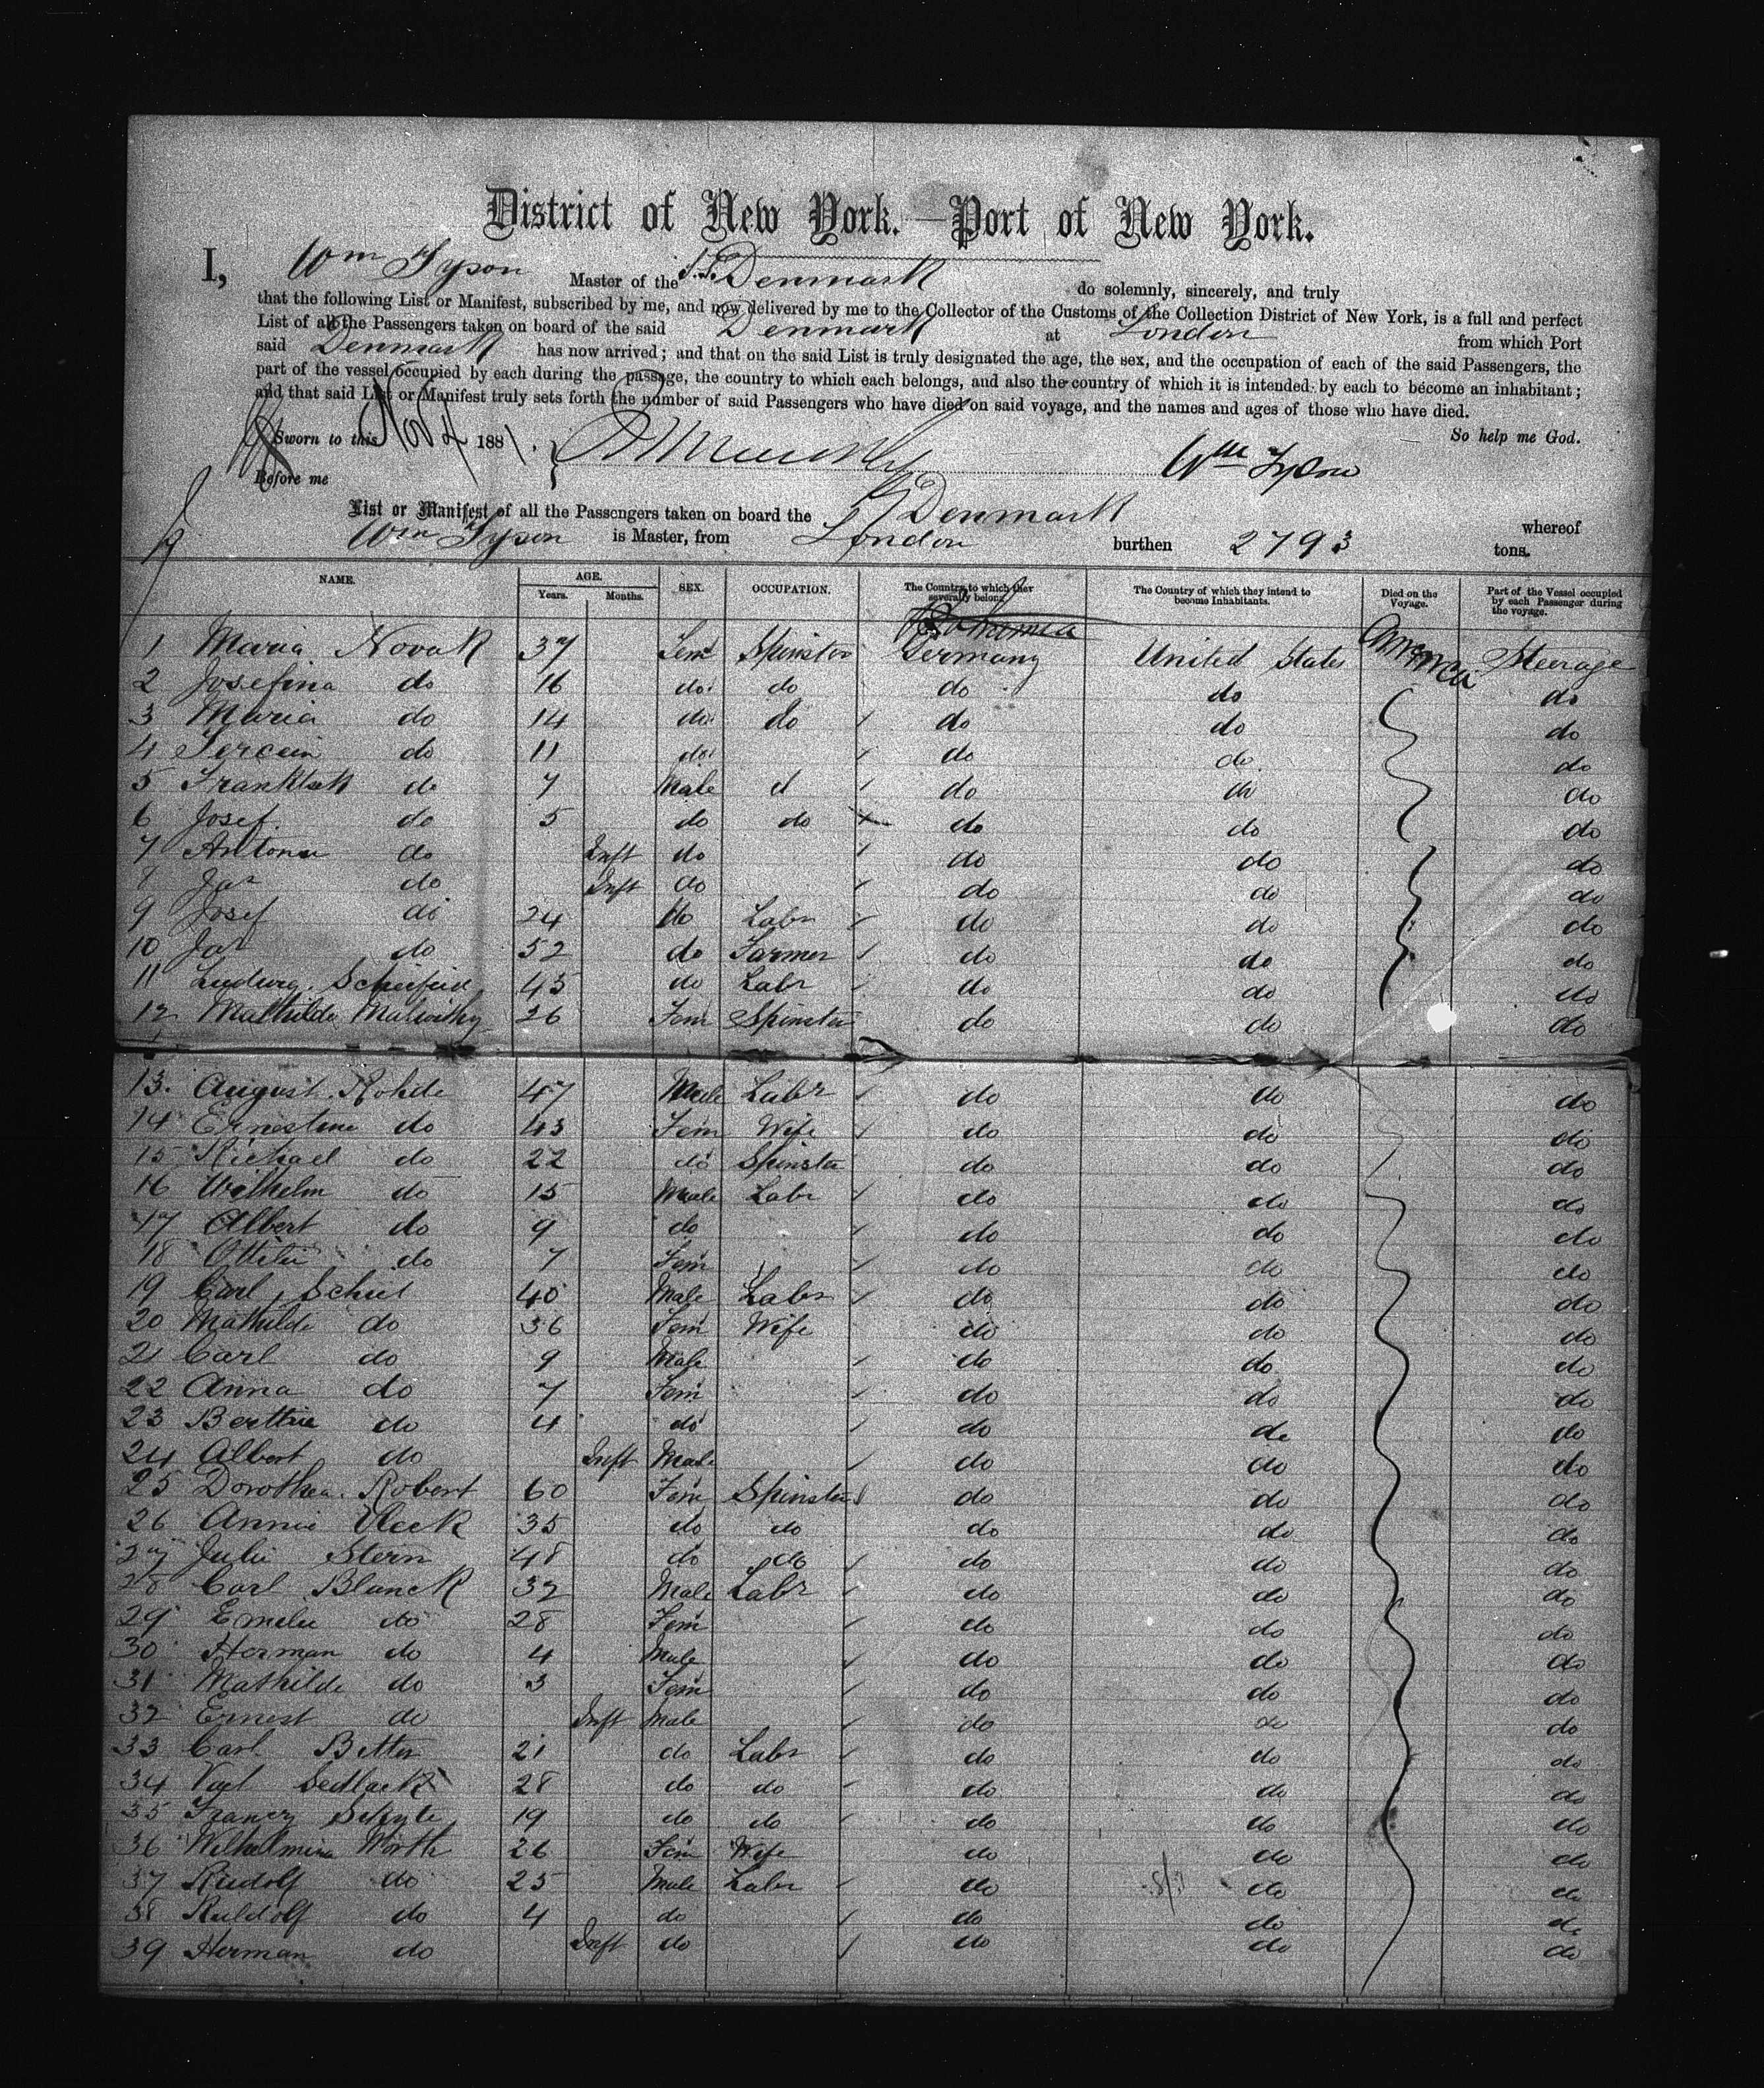 District of New York. — Port of New York.
I, Wm Tyson Master of the S.S. Denmark do solemnly, sincerely, and truly
that the following List or Manifest, subscribed by me, and now delivered by me to the Collector of the Customs of the Collection District of New York, is a full and perfect
List of all the Passengers taken on board of the said Denmark at London from which Port
said Denmark has now arrived; and that on the said List is truly designated the age, the sex, and the occupation of each of the said Passengers, the
part of the vessel occupied by each during the passage, the country to which each belongs, and also the country of which it is intended by each to become an inhabitant;
and that said List or Manifest truly sets forth the number of said Passengers who have died on said voyage, and the names and ages of those who have died.
So help me God.
Sworn to this Nov 4 1881. Wm Tyson
Before me
List or Manifest of all the Passengers taken on board the SS Denmark whereof
Wm Tyson is Master, from London burthen 2793 tons.
NAME. AGE. Years. Months. SEX. OCCUPATION. The Country to which they severally belong. The Country of which they intend to become Inhabitants. Died on the Voyage. Part of the Vessel occupied by each Passenger during the voyage.
Bohemia
1 Maria Novak 37 Fem Spinster Germany United States America Steerage
2 Josefina do 16 do do do do do
3 Maria do 14 do do do do do
4 do 11 do do do do
5 do 7 Male do do do
6 Josef do 5 do do do do do
7 Antona do Inft do do do do
8 Jar do Inft do do do do
9 Josef do 24 do Labr do do do
10 Jar do 52 do Farmer do do do
11 Ludwig 45 do Labr do do do
12 Mathilde 26 Fem Spinster do do do
13. August Rohde 47 Male Labr do do do
14 Ernestine do 43 Fem Wife do do do
15 do 22 do Spinster do do do
16 Wilhelm do 15 Male Labr do do do
17 Albert do 9 do do do do
18 Ottilie do 7 Fem do do do
19 Carl 40 Male Labr do do do
20 Mathilde do 36 Fem Wife do do do
21 Carl do 9 Male do do do
22 Anna do 7 Fem do do do
23 do 4 do do do do
24 Albert do Inft Male do do do
25 Dorothea Robert 60 Fem Spinster do do do
26 Annie Vleck 35 do do do do do
27 Julie Stern 48 do do do do do
28 Carl Blanck 32 Male Labr do do do
29 Emelie do 28 Fem do do do
30 Herman do 4 Male do do do
31 Mathilde do 3 Fem do do do
32 Ernest do Inft Male do do do
33 Carl Better 21 do Labr do do do
34 Sedlack 28 do do do do do
35 19 do do do do do
36 Wilhelmina Worth 26 Fem Wife do do do
37 Rudolf do 25 Male Labr do do do
38 Ruldolf do 4 do do do do
39 Herman do Inft do do do do